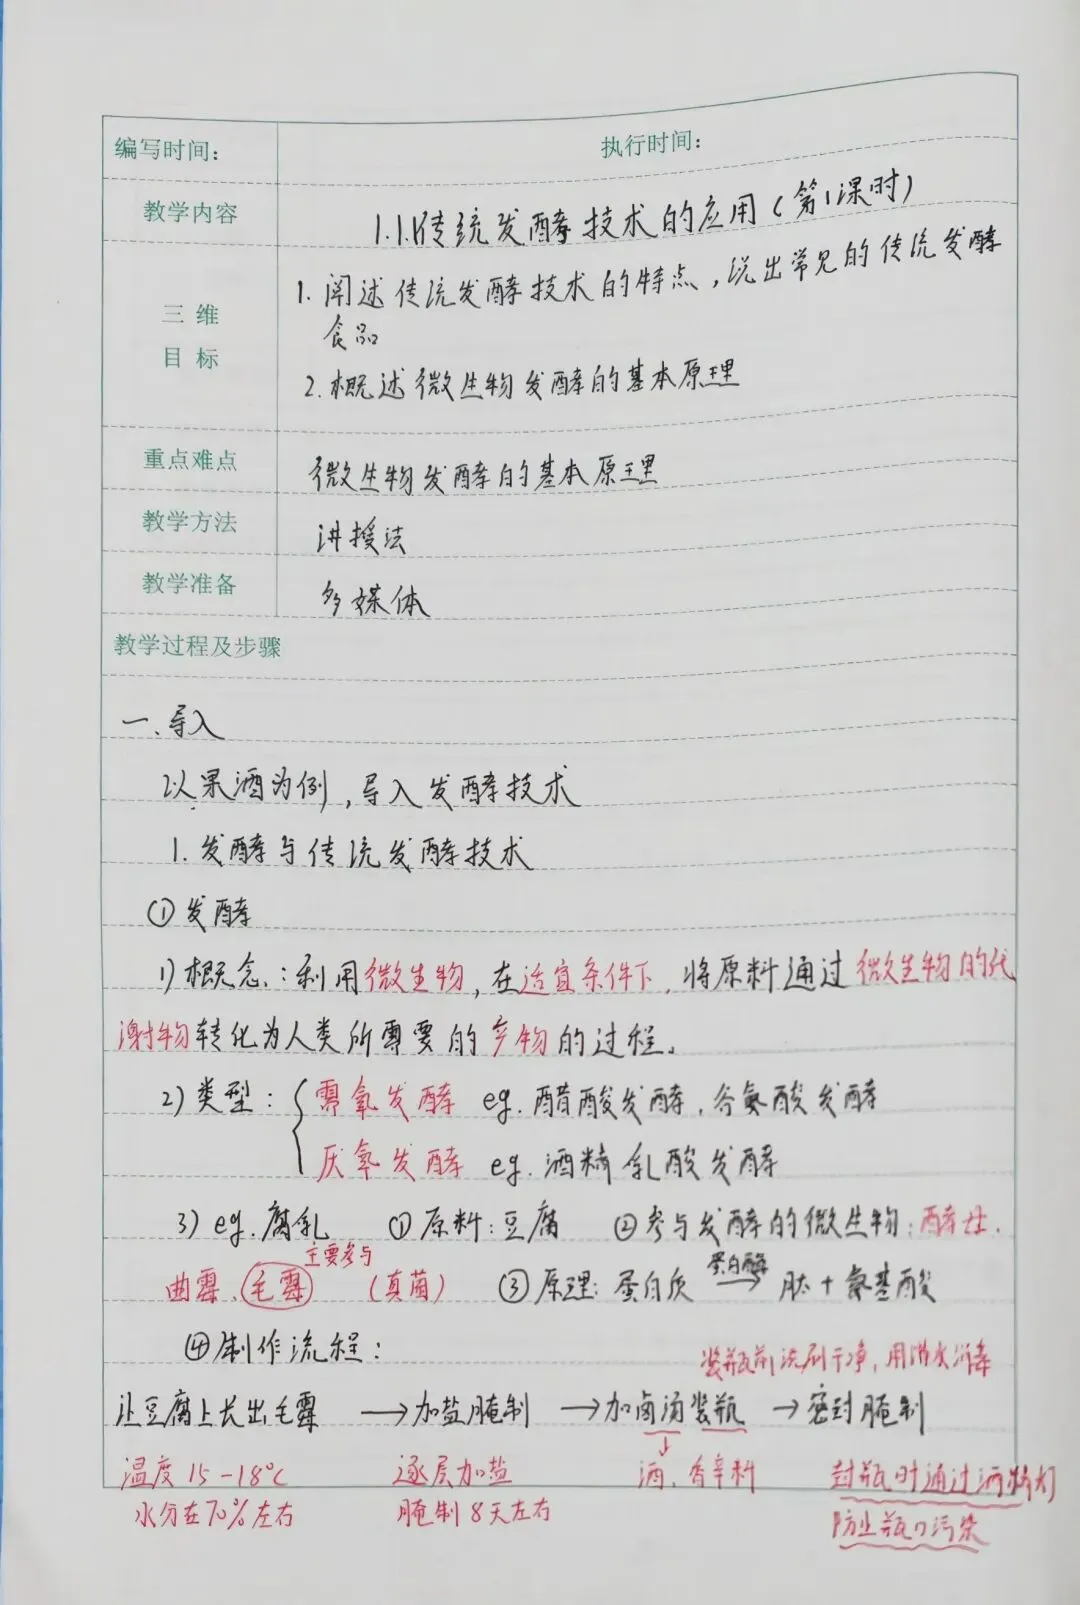 编写时间： 执行时间：
教学内容 1.1.1传统发酵技术的应用(第1课时)
三维
目标
1. 阐述传统发酵技术的特点,说出常见的传统发酵
食品
2.概述微生物发酵的基本原理
重点难点 微生物发酵的基本原理
教学方法 讲授法
教学准备 多媒体
教学过程及步骤
一.导入
以果酒为例,导入发酵技术
1.发酵与传统发酵技术
①发酵
1)概念:利用微生物,在适宜条件下,将原料通过微生物的代
谢物转化为人类所需要的产物的过程。
2)类型:{需氧发酵 eg.醋酸发酵,谷氨酸发酵
厌氧发酵 eg.酒精 乳酸发酵
3) eg.腐乳 ①原料:豆腐 ②参与发酵的微生物:酵母.
主要参与
曲霉、毛霉 (真菌) ③原理:蛋白质 蛋白酶→ 肽+氨基酸
④制作流程:
装瓶前洗刷干净,用沸水消毒
让豆腐上长出毛霉 →加盐腌制 →加卤汤装瓶 →密封腌制
温度15-18℃ 逐层加盐 ↓酒、香辛料 封瓶时通过酒精灯
水分在70%左右 腌制8天左右 防止瓶口污染